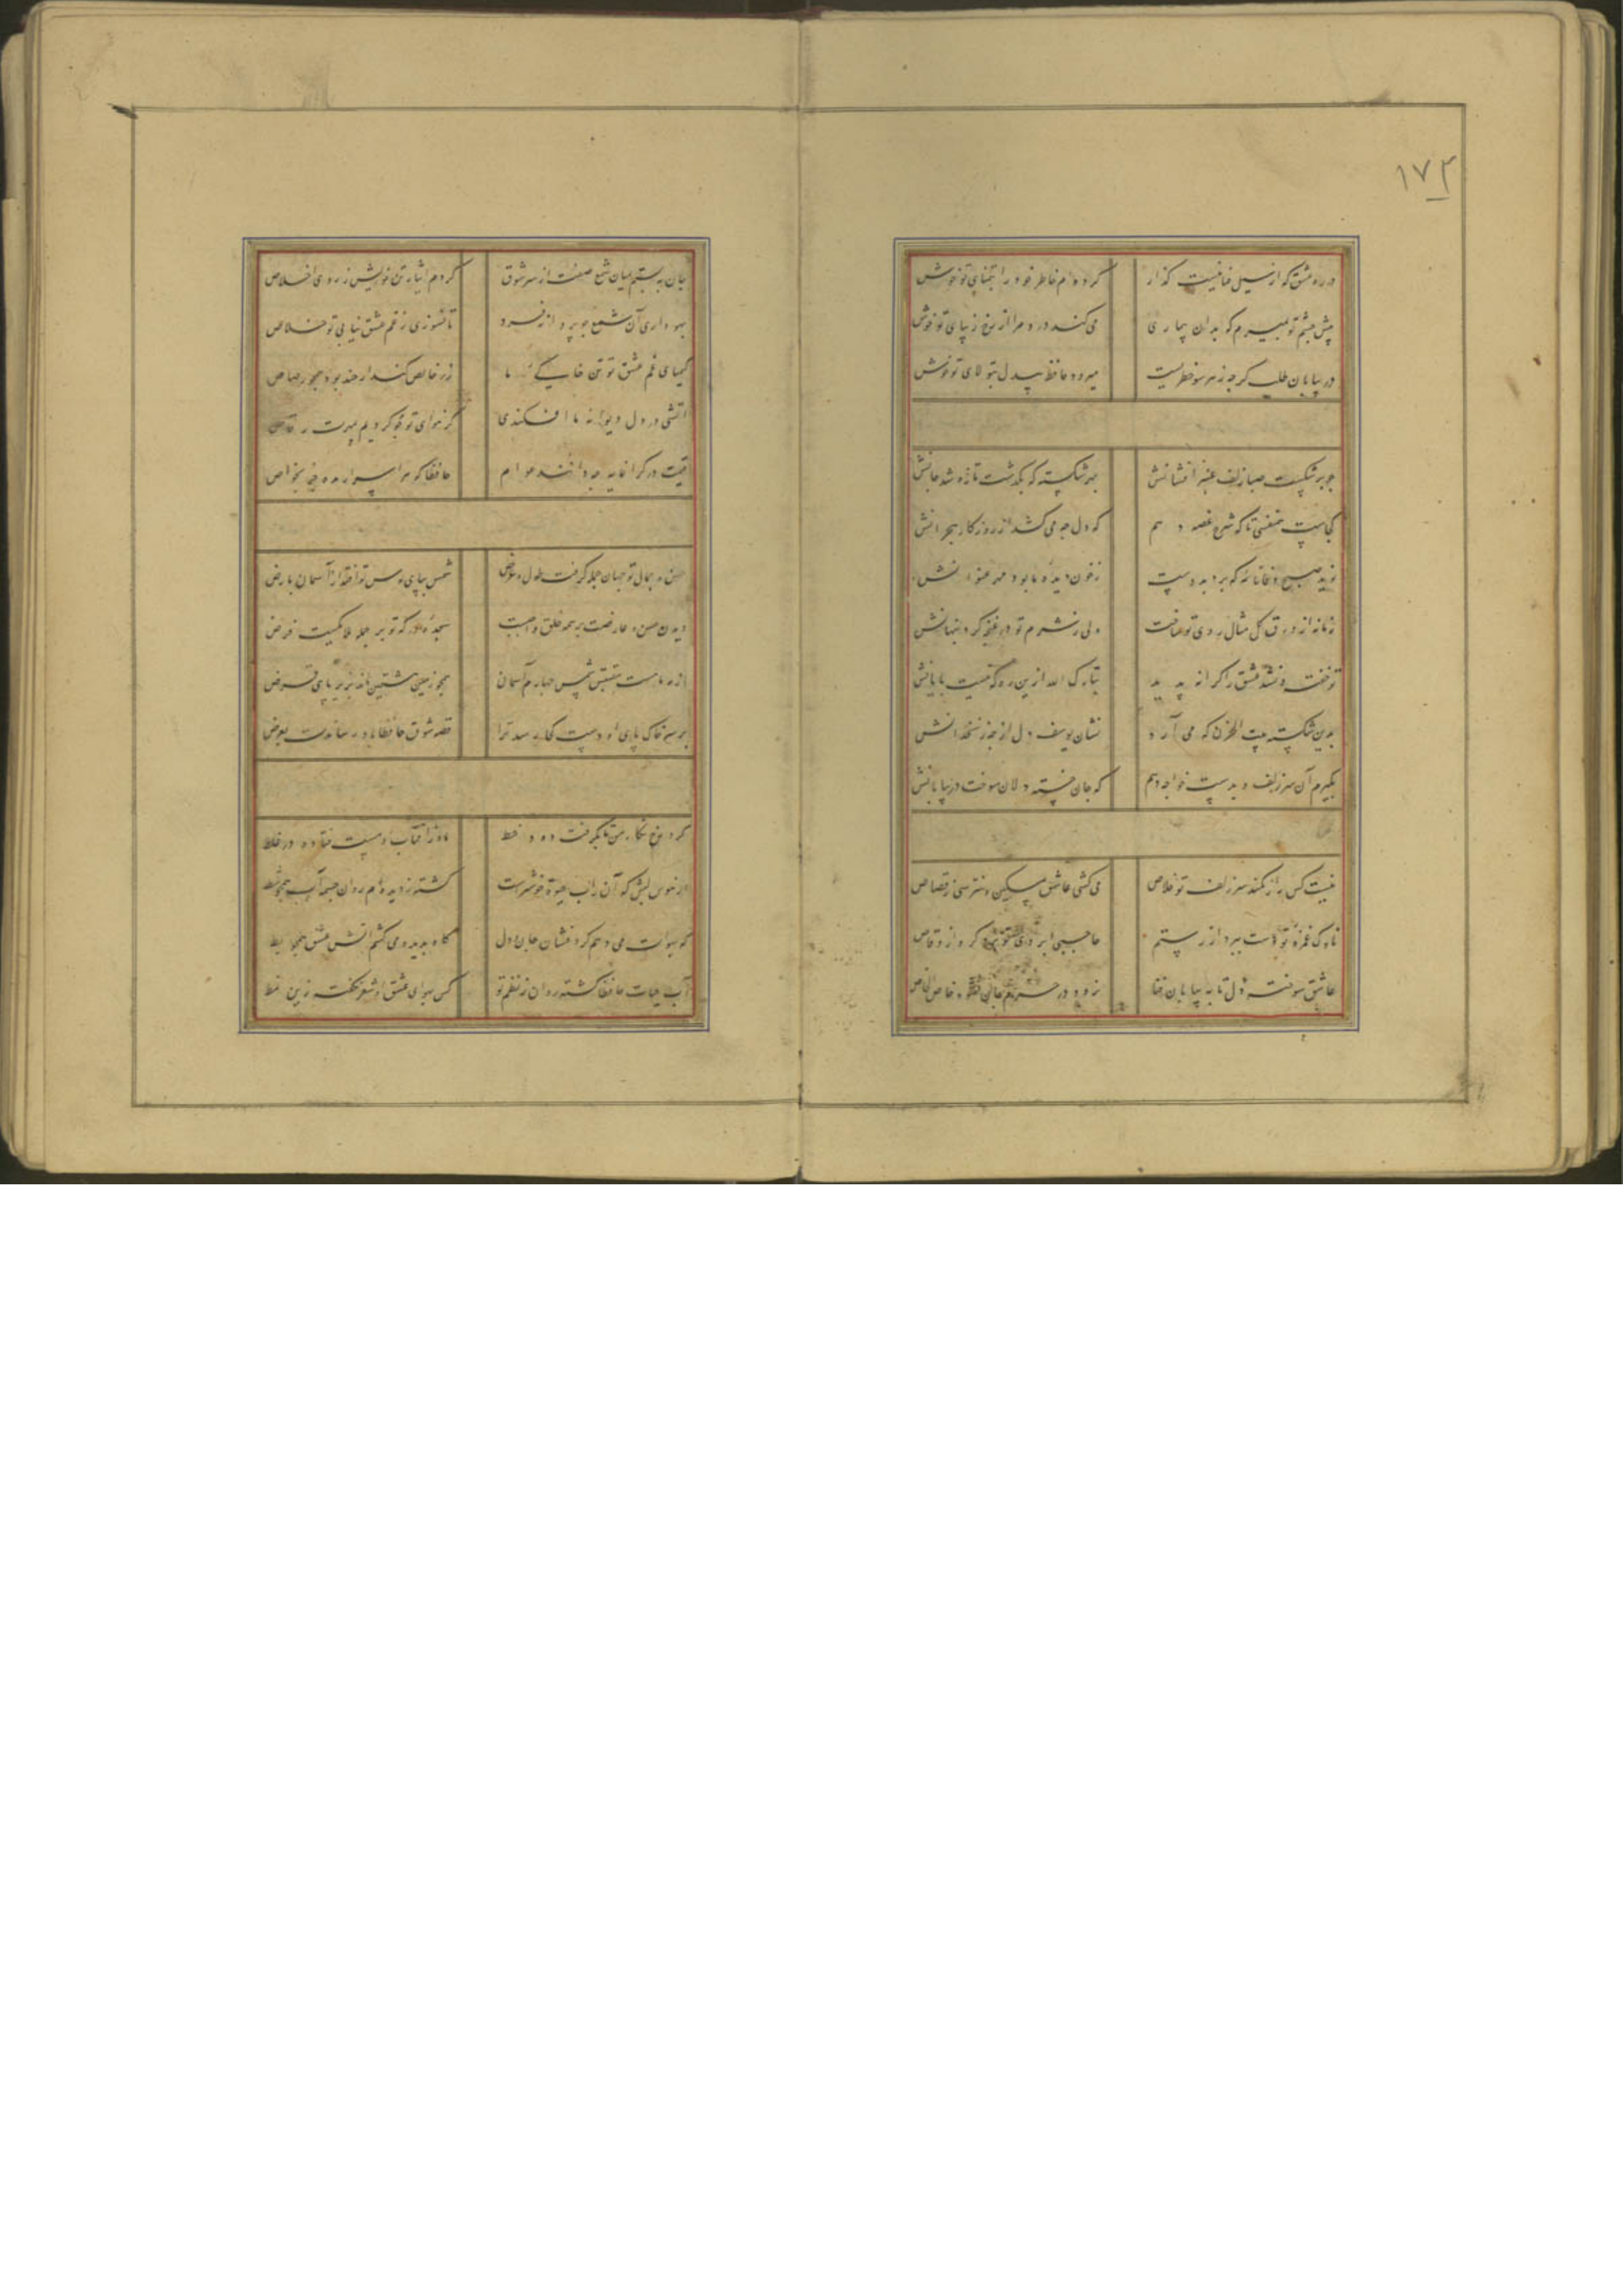 ١٧٢
در ره عشق که از سیل فنا نیست گذار
کرده‌ام خاطر خود را بتمنای تو خوش
پیش چشم تو بمیرم که بدان بیماری
می‌کند درد مرا از رخ زیبای تو خوش
در بیابان طلب گرچه ز هر سو خطریست
میرود حافظ بیدل بتولای تو خوش
چو برشکست صبا زلف عنبرافشانش
بهر شکسته که بگذشت تازه شد جانش
کجاست همنفسی تا که شرح غصه دهم
که دل چه می‌کشد از روزگار هجرانش
نوید صبح
ز خون دیده ما بود مهر عنوانش
زمانه از ورق گل مثال روی تو ساخت
ولی ز شرم تو در غنچه کرد پنهانش
تو خفته و نشد عشق را کرانه پدید
تبارک الله ازین ره که نیست پایانش
بدین شکسته بیت الحزن که می آرد
نشان یوسف دل از چه زنخدانش
بگیرم آن سر زلف و بدست خواجه دهم
که جان خسته دلان سوخت در بیابانش
نیست کس را ز کمند سر زلف تو خلاص
می‌کشی عاشق مسکین و نترسی ز قصاص
ناوک غمزه تو دست ببرد از رستم
حاجب ابروی تو برده گرو از وقاص
عاشق سوخته دل تا به بیابان فنا
نرود در حرم جان نشود خاص الخاص
جان نه بستم بمیان شمع صفت از سر شوق
کردم ایثار تن خویش ز روی اخلاص
بهواداری آن شمع چو پروانه
تا نسوزی ز غم عشق نیابی تو خلاص
کیمیای غم عشق تو تن خاکی ما
زر خالص کند ار چند بود همچو رصاص
آتشی در دل دیوانه ما افکندی
گر هوای تو
قیمت در گرانمایه چه دانند عوام
حافظا گوهر اسرار مده جز بخواص
حسن و جمال تو جهان جمله گرفت طول و عرض
شمس
دیدن حسن عارضت بر همه خلق واجبست
سجده
از
همچو زمین هشتمین مانده بزیر پای قرض
بر سر خاک پای او دست کجا رسد ترا
قصه شوق حافظا باد رساندت بعرض
گرد رخ نگار من تا بگرفت دود خط
ماه ز آفتاب او هست فتاده در غلط
از هوس لبش که آن ز آب حیوة خوشترست
گشته ز دیده‌ام روان چشمه آب همچو شط
گه بهوات می دهم گرد فشان جان و دل
گاه بدیده می کشم آتش عشق همچو بط
آب حیات حافظا گشته روان ز نظم تو
کس بهوای عشق او شعر نگفت زین نمط